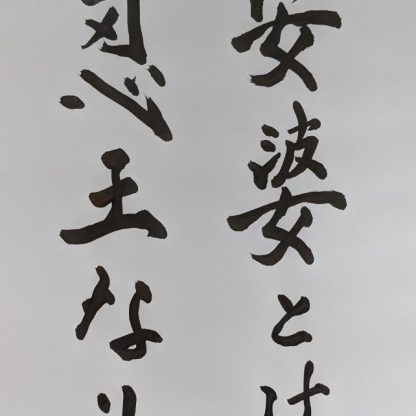 娑婆とは
心王なり